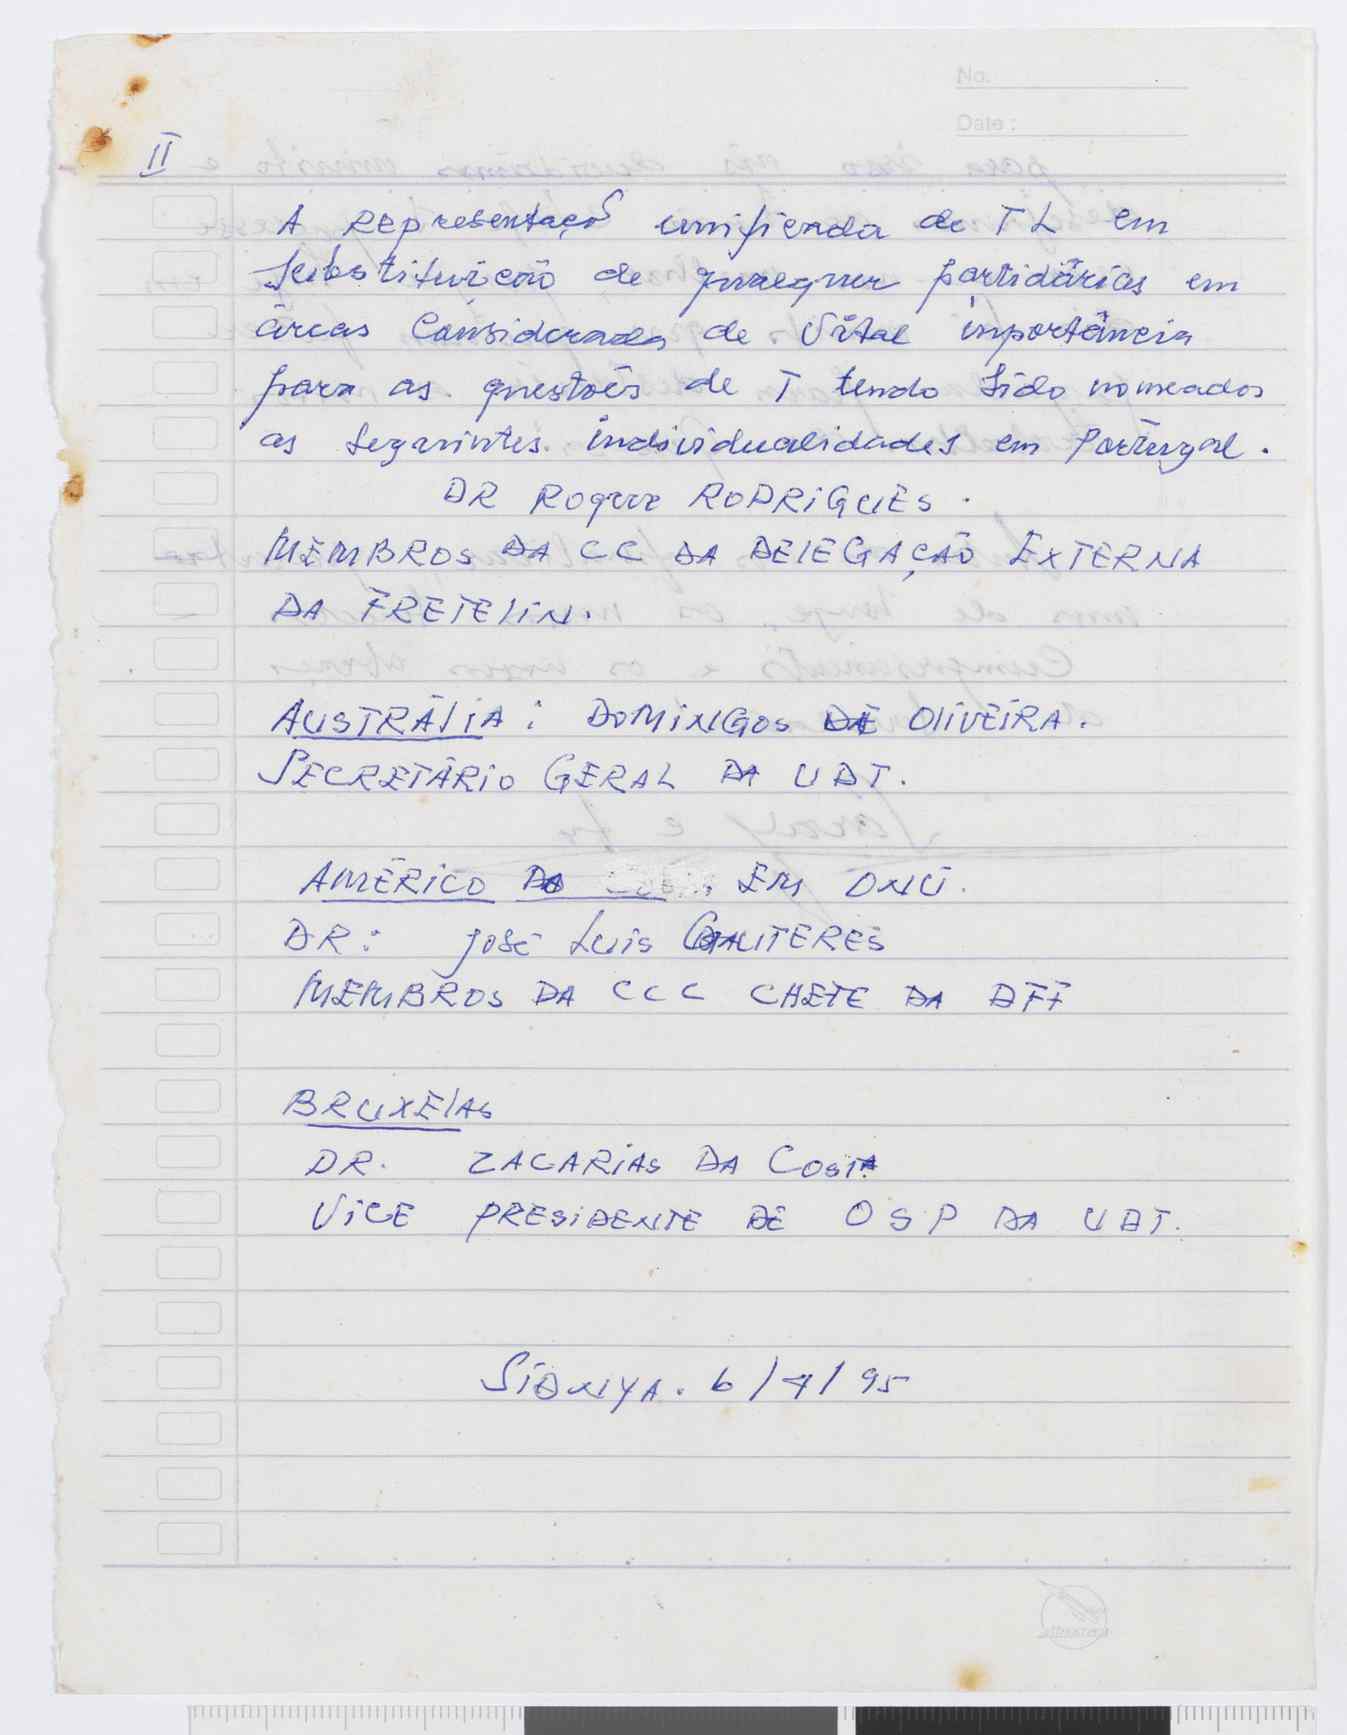 No.
Date :
II
A Representaçõ unificada de TL em
substituição de quaequer partidárias em
áreas Consideradas de Vital importância
para as questões de T tendo sido nomeados
as seguintes individualidades em Portugal.
DR Roque RODRIGUES.
MEMBROS DA CC DA DELEGAÇÃO EXTERNA
DA FRETELIN.
AUSTRÁLIA : DOMINGOS DE OLIVEIRA.
SECRETÁRIO GERAL DA UDT.
AMÉRICO DO EM ONU.
DR: José Luis GUTERES
MEMBROS DA CCC CHEFE DA DFF
BRUXELAS
DR. ZACARIAS DA COSTA
VICE PRESIDENTE DE OSP DA UDT.
SIDNYA. 6/7/95